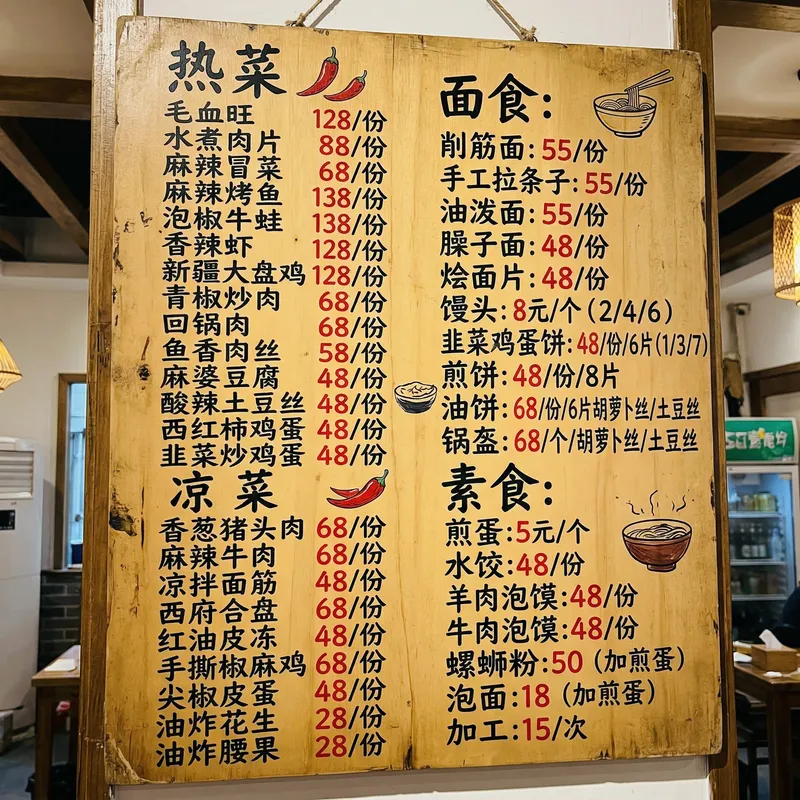 热菜
毛血旺 128/份
水煮肉片 88/份
麻辣冒菜 68/份
麻辣烤鱼 138/份
泡椒牛蛙 138/份
香辣虾 128/份
新疆大盘鸡 128/份
青椒炒肉 68/份
回锅肉 68/份
鱼香肉丝 58/份
麻婆豆腐 48/份
酸辣土豆丝 48/份
西红柿鸡蛋 48/份
韭菜炒鸡蛋 48/份
凉菜
香葱猪头肉 68/份
麻辣牛肉 68/份
凉拌面筋 48/份
西府合盘 68/份
红油皮冻 48/份
手撕椒麻鸡 68/份
尖椒皮蛋 48/份
油炸花生 28/份
油炸腰果 28/份
面食:
削筋面:55/份
手工拉条子:55/份
油泼面:55/份
臊子面:48/份
烩面片:48/份
馒头:8元/个(2/4/6)
韭菜鸡蛋饼:48/份/6片(1/3/7)
煎饼:48/份/8片
油饼:68/份/6片胡萝卜丝/土豆丝
锅盔:68/个/胡萝卜丝/土豆丝
素食:
煎蛋:5元/个
水饺:48/份
羊肉泡馍:48/份
牛肉泡馍:48/份
螺蛳粉:50(加煎蛋)
泡面:18(加煎蛋)
加工:15/次